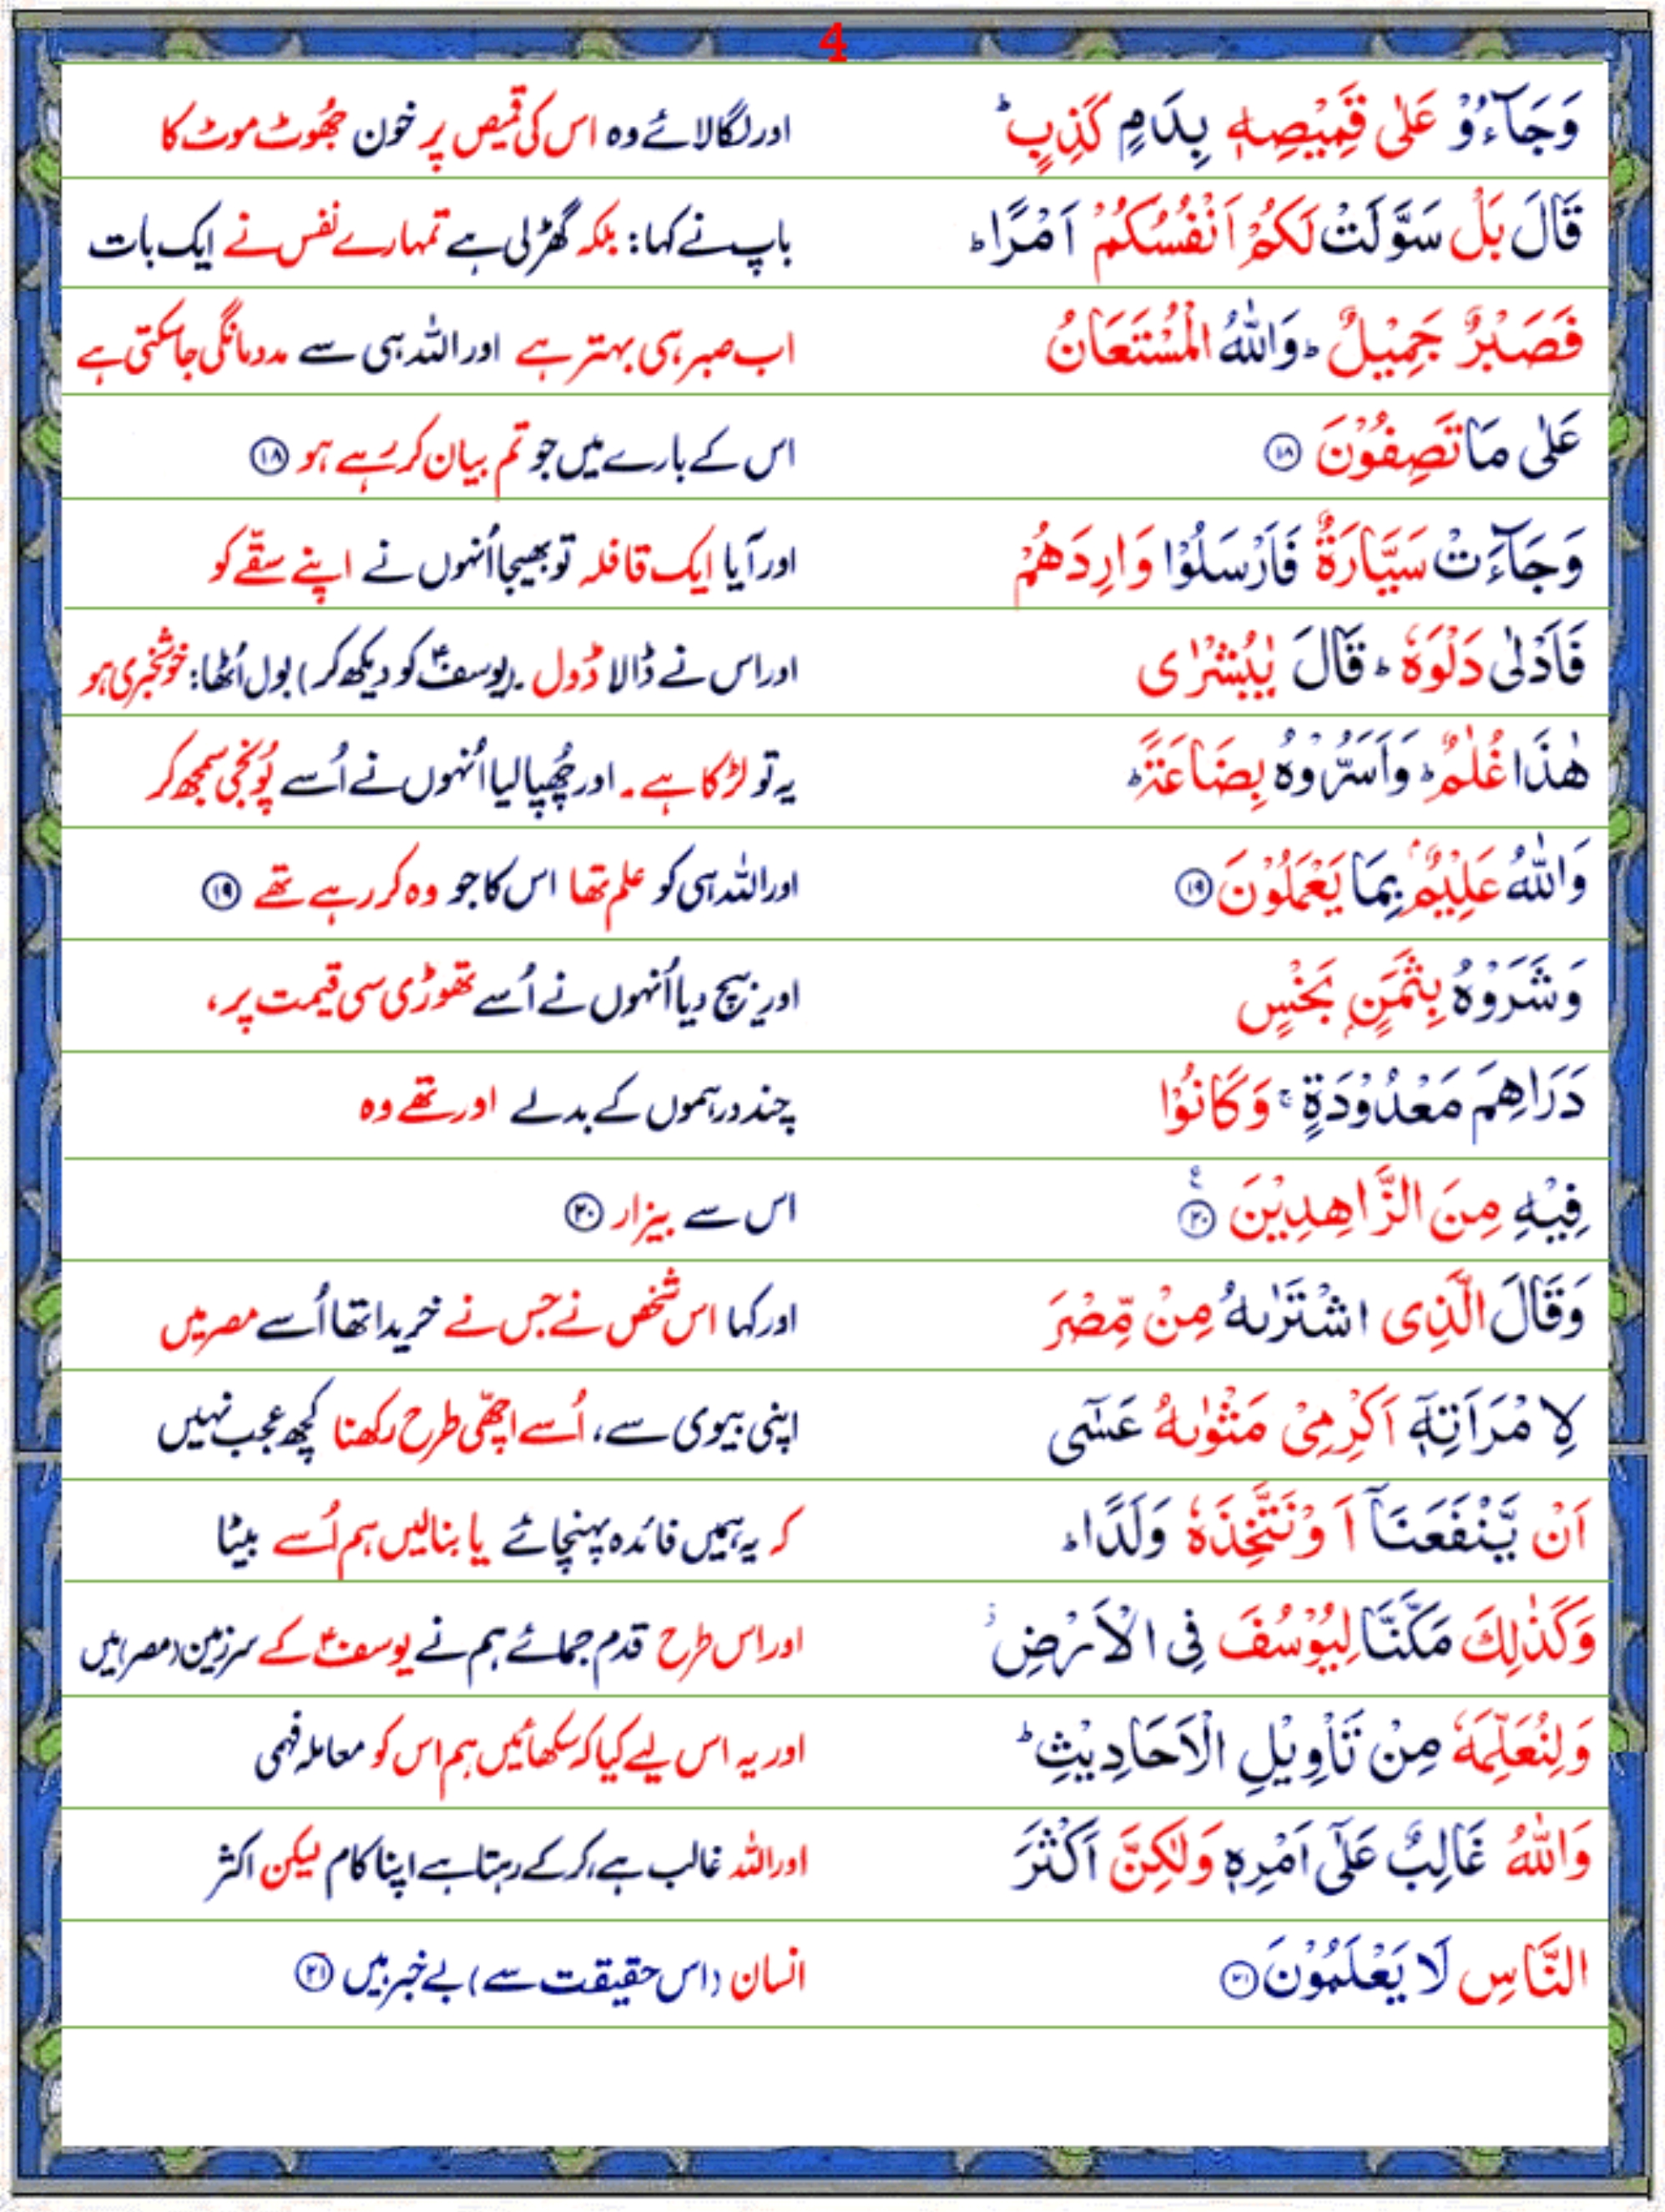 4
وَجَآءُوْ عَلٰى قَمِيْصِهٖ بِدَمٍ كَذِبٍ ؕ اور لگا لائے وہ اس کی قمیص پر خون جھُوٹ موٹ کا
قَالَ بَلْ سَوَّلَتْ لَكُمْ اَنْفُسُكُمْ اَمْرًا ؕ باپ نے کہا: بلکہ گھڑلی ہے تمہارے نفس نے ایک بات
فَصَبْرٌ جَمِيْلٌ ؕ وَاللّٰهُ الْمُسْتَعَانُ اب صبر ہی بہتر ہے اور اللہ ہی سے مدد مانگی جاسکتی ہے
عَلٰى مَا تَصِفُوْنَ ۱۸ اس کے بارے میں جو تم بیان کر رہے ہو ۱۸
وَجَآءَتْ سَيَّارَةٌ فَاَرْسَلُوْا وَارِدَهُمْ اور آیا ایک قافلہ تو بھیجا اُنہوں نے اپنے سقّے کو
فَاَدْلٰى دَلْوَهٗ ؕ قَالَ يٰبُشْرٰى اور اس نے ڈالا ڈول۔ (یوسفؑ کو دیکھ کر) بول اُٹھا: خوشخبری ہو
هٰذَا غُلٰمٌ ؕ وَاَسَرُّوْهُ بِضَاعَةً ؕ یہ تو لڑکا ہے۔ اور چھُپا لیا اُنہوں نے اُسے پُونجی سمجھ کر
وَاللّٰهُ عَلِيْمٌۢ بِمَا يَعْمَلُوْنَ ۱۹ اور اللہ ہی کو علم تھا اس کا جو وہ کر رہے تھے ۱۹
وَشَرَوْهُ بِثَمَنٍۭ بَخْسٍ اور بیچ دیا اُنہوں نے اُسے تھوڑی سی قیمت پر،
دَرَاهِمَ مَعْدُوْدَةٍ ۚ وَكَانُوْا چند درہموں کے بدلے اور تھے وہ
فِيْهِ مِنَ الزَّاهِدِيْنَ ۲۰ ع اس سے بیزار ۲۰
وَقَالَ الَّذِى اشْتَرٰىهُ مِنْ مِّصْرَ اور کہا اس شخص نے جس نے خریدا تھا اُسے مصر میں
لِامْرَاَتِهٖٓ اَكْرِمِىْ مَثْوٰىهُ عَسٰٓى اپنی بیوی سے، اُسے اچھّی طرح رکھنا کچھ عجب نہیں
اَنْ يَّنْفَعَنَآ اَوْ نَتَّخِذَهٗ وَلَدًا ؕ کہ یہ ہمیں فائدہ پہنچائے یا بنالیں ہم اُسے بیٹا
وَكَذٰلِكَ مَكَّنَّا لِيُوْسُفَ فِى الْاَرْضِ ز اور اس طرح قدم جمائے ہم نے یوسفؑ کے سرزمین (مصر) میں
وَلِنُعَلِّمَهٗ مِنْ تَاْوِيْلِ الْاَحَادِيْثِ ؕ اور یہ اس لیے کیا کہ سکھائیں ہم اس کو معاملہ فہمی
وَاللّٰهُ غَالِبٌ عَلٰٓى اَمْرِهٖ وَلٰكِنَّ اَكْثَرَ اور اللہ غالب ہے، کر کے رہتا ہے اپنا کام لیکن اکثر
النَّاسِ لَا يَعْلَمُوْنَ ۲۱ انسان (اس حقیقت سے) بے خبر ہیں ۲۱